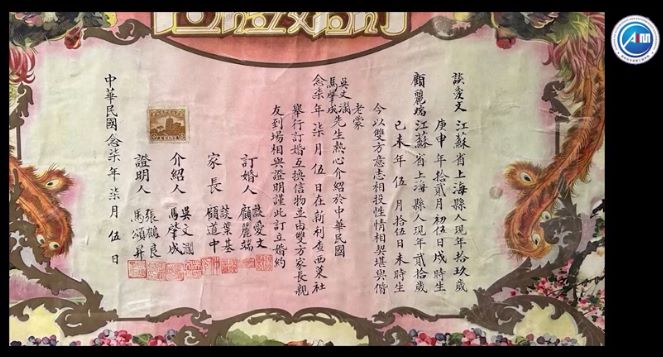 訂婚證書
談愛文 江蘇省上海縣人現年拾玖歲
庚申年拾貳月初伍日戌時生
顧麗瑞 江蘇省上海縣人現年貳拾歲
己未年伍月拾伍日未時生
今以雙方意志相投性情相契堪與偕
老蒙
吳文瀾
馬肇成先生熱心介紹於中華民國
念柒年柒月伍日在新利查西菜社
舉行訂婚互換信物並由雙方家長親
友到場相與證明謹此訂立婚約
訂婚人 談愛文
顧麗瑞
家長 談葉基
顧道中
介紹人 吳文瀾
馬肇成
證明人 張鶴良
馬頌昇
中華民國念柒年柒月伍日